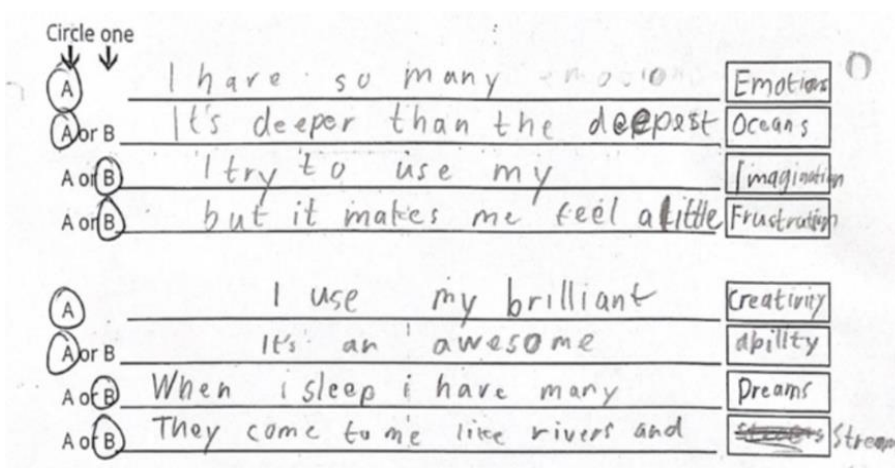 Circle one
A I have so many Emotions
A or B It's deeper than the deepest Oceans
A or B I try to use my Imagination
A or B but it makes me feel a little Frustration
A I use my brilliant Creativity
A or B It's an awesome ability
A or B When i sleep i have many Dreams
A or B They come to me like rivers and